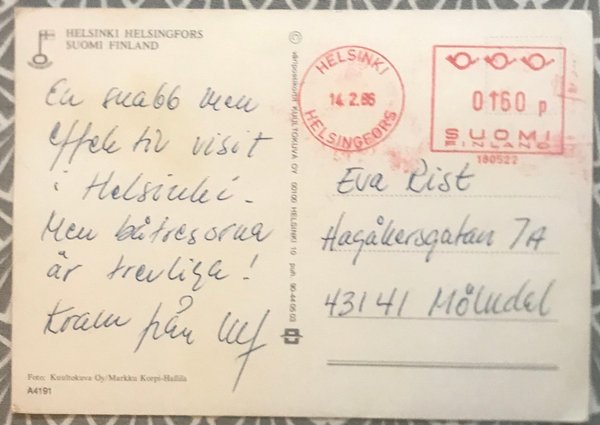 HELSINKI HELSINGFORS
SUOMI FINLAND
En snabb men
effektiv visit
i Helsinki.
Men båtresorna
är trevliga!
Kram från Ulf
Foto: Kuultokuva Oy/Markku Korpi-Hallila
A4191
©
KUULTOKUVA OY 00100 HELSINKI 10 puh. 90-44 05 02
HELSINKI
14.2.86
HELSINGFORS
0160 p
SUOMI
FINLAND
180522
Eva Rist
Hagåkersgatan 7A
43141 Mölndal